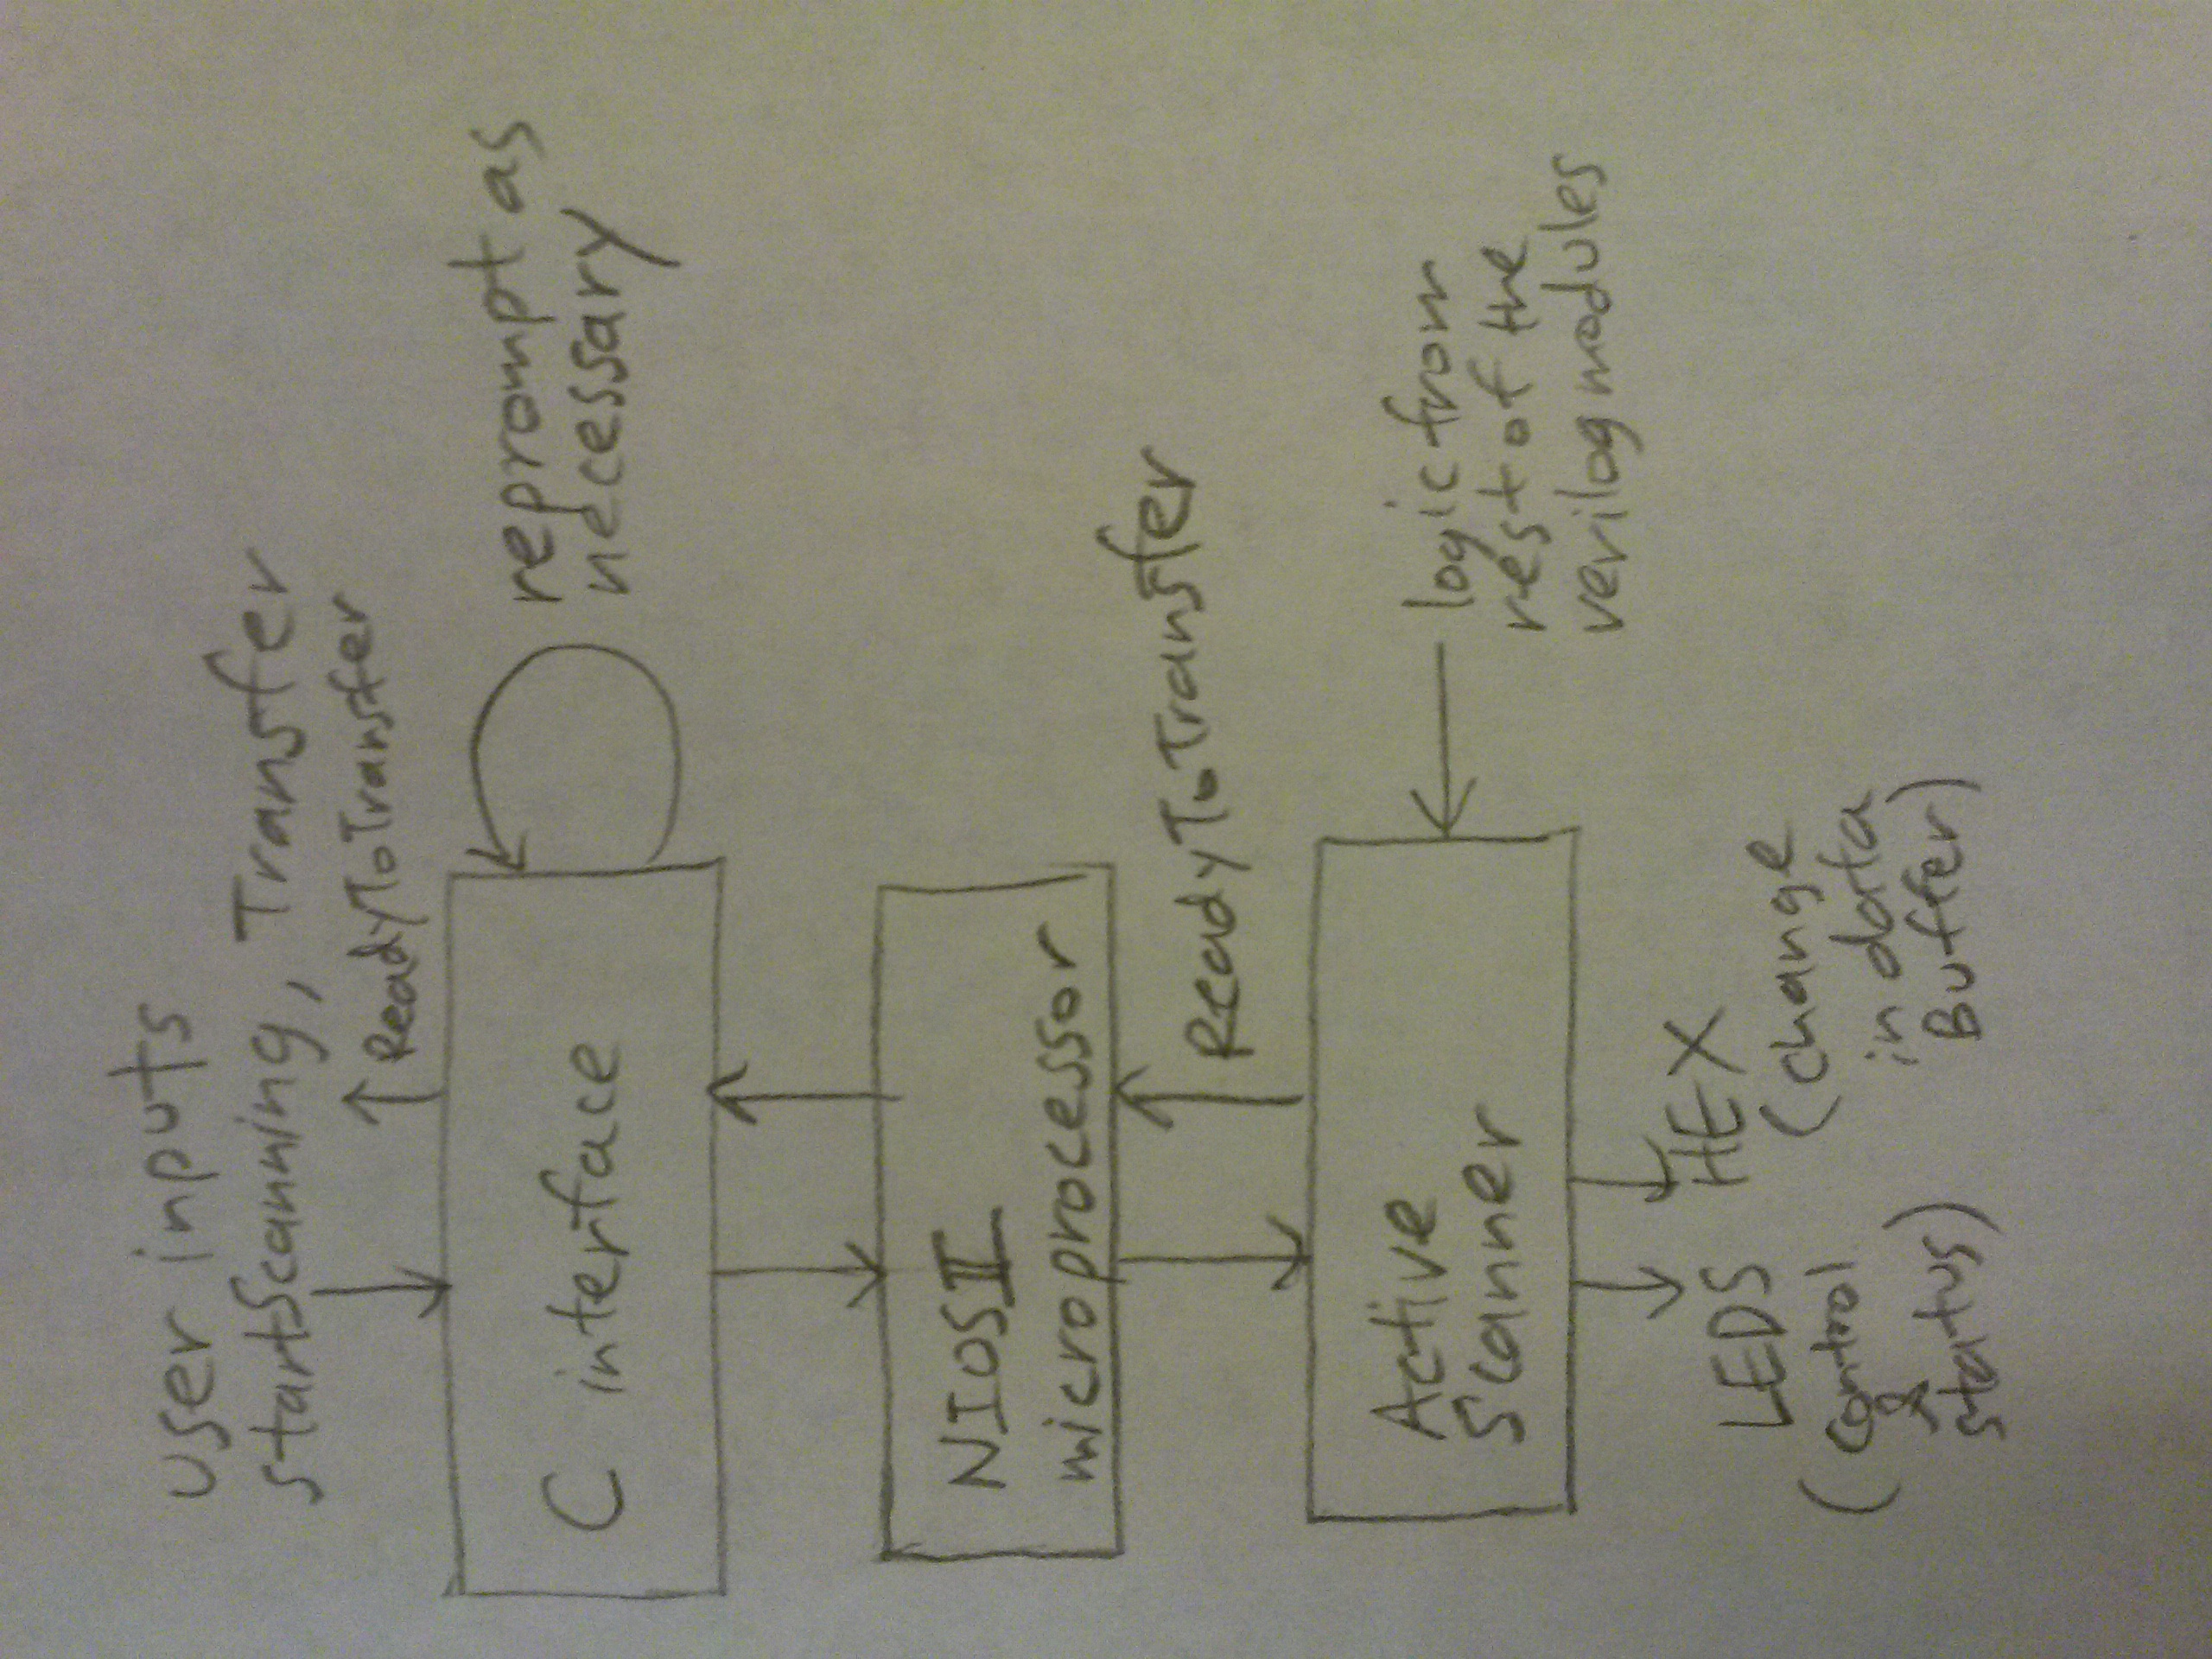 user inputs
startScanning, Transfer
ReadyToTransfer
C interface
reprompt as
necessary
NIOSII
microprocessor
ReadyToTransfer
Active
Scanner
logic from
rest of the
verilog modules
LEDS
(control
&
status)
HEX
(change
in data
Buffer)